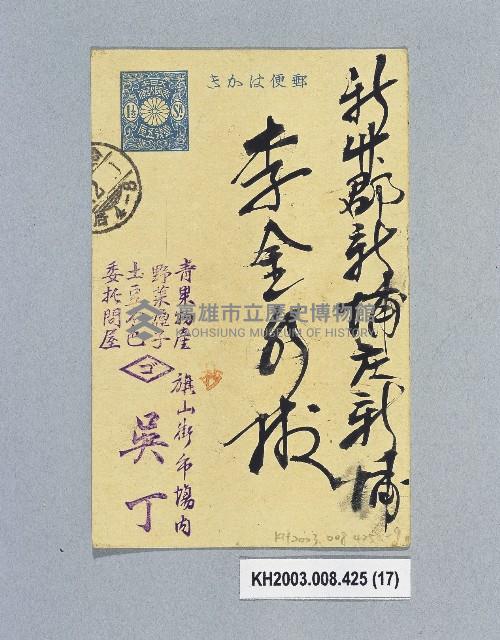 郵便はがき
1½
新竹郡新埔庄新埔
李金
殿
青果物產
野菜種子
土豆石巴
委托問屋
旗山街市場内
吳丁
高雄市立歷史博物館
KAOHSIUNG MUSEUM OF HISTORY
KH2003.008.425
KH2003.008.425 (17)